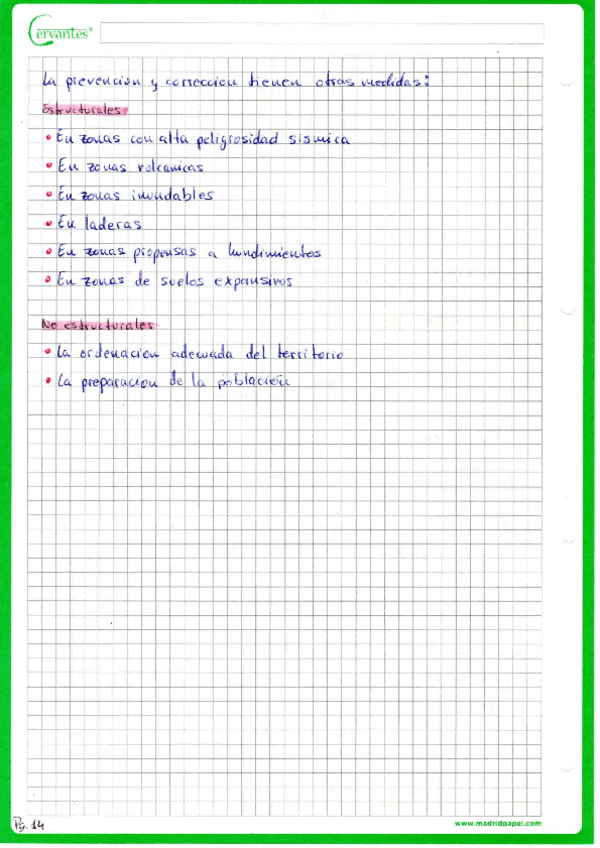 Cervantes®
La prevencion y correccion tienen otras medidas:
Estructurales
• En zonas con alta peligrosidad sismica
• En zonas volcanicas
• En zonas inundables
• En laderas
• En zonas propensas a hundimientos
• En zonas de suelos expansivos
No estructurales
• La ordenacion adecuada del territorio
• La preparacion de la población
Pg. 14
www.madridpapel.com